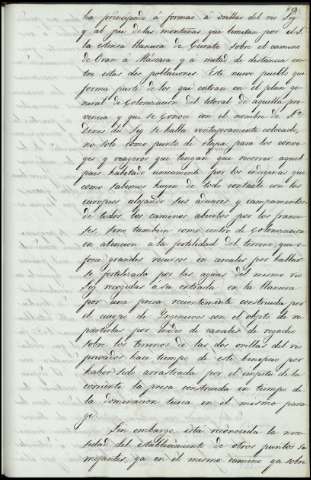 ha principiado á formar á orillas del rio Sig
y al pie de las montañas que limitan por el S.
la extensa llanura de Ceirato sobre el camino
de Oran á Máscara y á mitad de distancia en-
tre estas dos poblaciones. Este nuevo pueblo que
forma parte de los que entran en el plan ge-
neral de Colonizacion del litoral de aquella pro-
vincia y que se conoce con el nombre de St
Denis du Sig se halla ventajosamente colocado,
no solo como punto de etapa para los convo-
yes y viageros que tengan que recorrer aquel
pais habitado unicamente por los indigenas que
como sabemos huyen de todo contacto con los
europeos alejando sus aduares y campamentos
de todos los caminos abiertos por los france-
ses, sino tambien como centro de Colonizacion
en atencion á la fertilidad del terreno que o-
frece grandes recursos en cereales por hallar-
se fertilizado por las aguas del mismo rio
Sig recogidas á su entrada en la llanura
por una presa recientemente construida por
el cuerpo de Yngenieros con el objeto de re-
partirlas por medio de canales de regadio
sobre los terrenos de las dos orillas del rio
privados hace tiempo de este beneficio por
haber sido arrastrada por el impetu de la
corriente la presa construida en tiempo de
la dominacion turca en el mismo para-
ge.
Sin embargo está reconocida la nece-
sidad del establecimiento de otros puntos se-
mejantes, ya en el mismo camino ya sobre